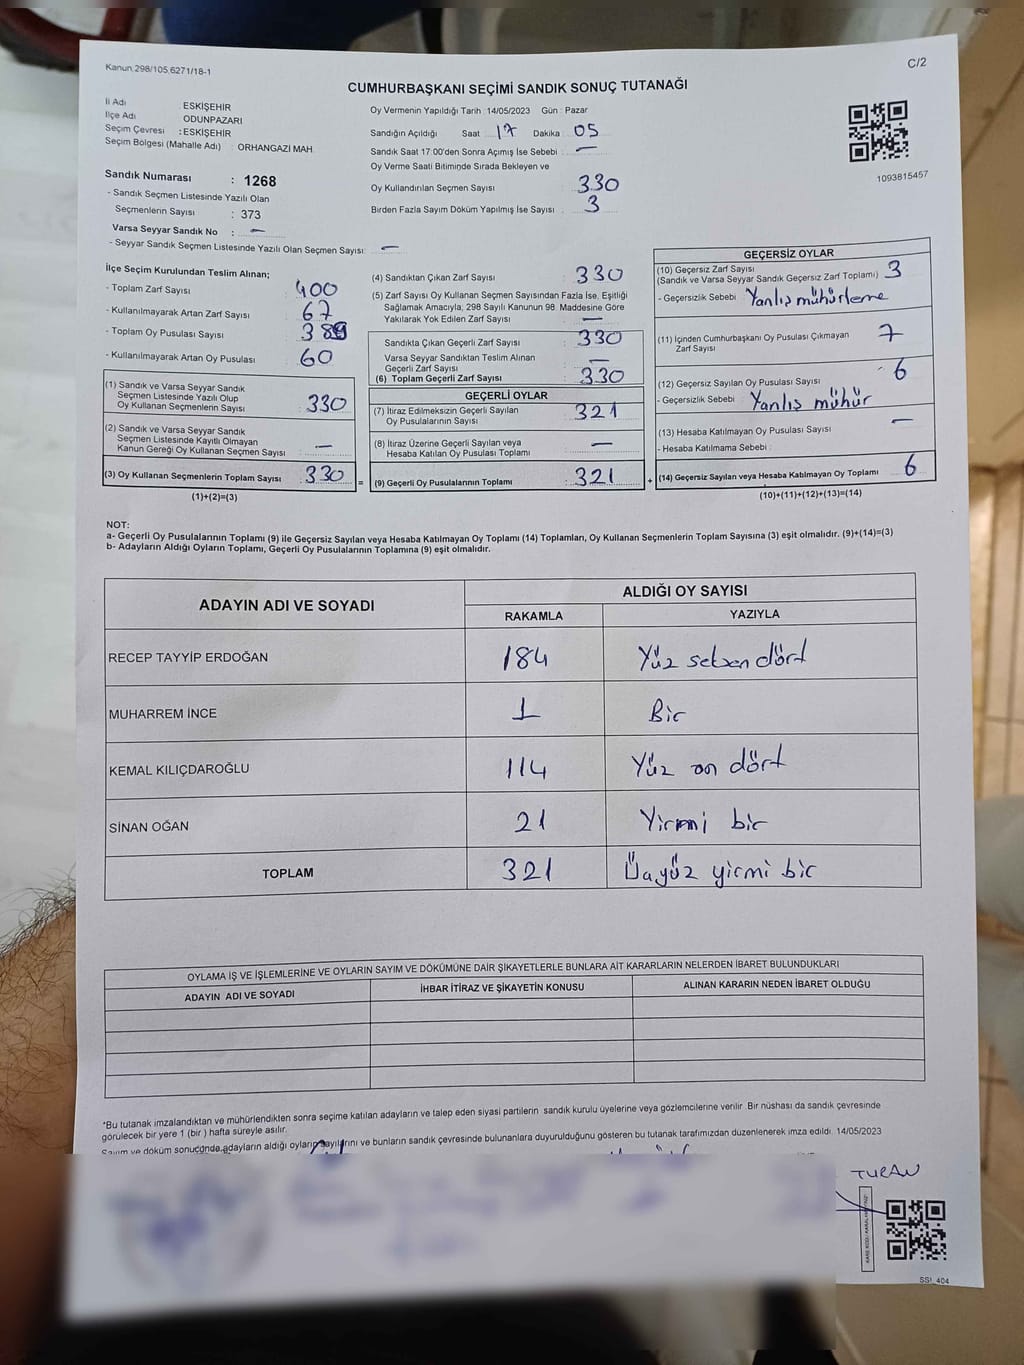 Kanun 298/105,6271/18-1
C/2
CUMHURBAŞKANI SEÇİMİ SANDIK SONUÇ TUTANAĞI
İl Adı : ESKİŞEHİR
İlçe Adı : ODUNPAZARI
Seçim Çevresi : ESKİŞEHİR
Seçim Bölgesi (Mahalle Adı) : ORHANGAZİ MAH.
Sandık Numarası : 1268
- Sandık Seçmen Listesinde Yazılı Olan
Seçmenlerin Sayısı : 373
Varsa Seyyar Sandık No : —
- Seyyar Sandık Seçmen Listesinde Yazılı Olan Seçmen Sayısı: —
Oy Vermenin Yapıldığı Tarih : 14/05/2023 Gün : Pazar
Sandığın Açıldığı Saat 17 Dakika 05
Sandık Saat 17:00'den Sonra Açımış İse Sebebi : —
Oy Verme Saati Bitiminde Sırada Bekleyen ve
Oy Kullandırılan Seçmen Sayısı : 330
Birden Fazla Sayım Döküm Yapılmış İse Sayısı : 3
1093815457
İlçe Seçim Kurulundan Teslim Alınan;
- Toplam Zarf Sayısı : 400
- Kullanılmayarak Artan Zarf Sayısı : 67
- Toplam Oy Pusulası Sayısı :
- Kullanılmayarak Artan Oy Pusulası : 60
(1) Sandık ve Varsa Seyyar Sandık
Seçmen Listesinde Yazılı Olup
Oy Kullanan Seçmenlerin Sayısı : 330
(2) Sandık ve Varsa Seyyar Sandık
Seçmen Listesinde Kayıtlı Olmayan
Kanun Gereği Oy Kullanan Seçmen Sayısı : —
(3) Oy Kullanan Seçmenlerin Toplam Sayısı : 330 =
(1)+(2)=(3)
(4) Sandıktan Çıkan Zarf Sayısı : 330
(5) Zarf Sayısı Oy Kullanan Seçmen Sayısından Fazla İse, Eşitliği
Sağlamak Amacıyla, 298 Sayılı Kanunun 98. Maddesine Göre
Yakılarak Yok Edilen Zarf Sayısı : —
Sandıkta Çıkan Geçerli Zarf Sayısı : 330
Varsa Seyyar Sandıktan Teslim Alınan
Geçerli Zarf Sayısı : —
(6) Toplam Geçerli Zarf Sayısı : 330
GEÇERLİ OYLAR
(7) İtiraz Edilmeksizin Geçerli Sayılan
Oy Pusulalarının Sayısı : 321
(8) İtiraz Üzerine Geçerli Sayılan veya
Hesaba Katılan Oy Pusulası Toplamı : —
(9) Geçerli Oy Pusulalarının Toplamı : 321 +
GEÇERSİZ OYLAR
(10) Geçersiz Zarf Sayısı
(Sandık ve Varsa Seyyar Sandık Geçersiz Zarf Toplamı) : 3
- Geçersizlik Sebebi : Yanlış mühürleme
(11) İçinden Cumhurbaşkanı Oy Pusulası Çıkmayan
Zarf Sayısı : 7
(12) Geçersiz Sayılan Oy Pusulası Sayısı : 6
- Geçersizlik Sebebi : Yanlış mühür
(13) Hesaba Katılmayan Oy Pusulası Sayısı : —
- Hesaba Katılmama Sebebi :
(14) Geçersiz Sayılan veya Hesaba Katılmayan Oy Toplamı : 6
(10)+(11)+(12)+(13)=(14)
NOT:
a- Geçerli Oy Pusulalarının Toplamı (9) ile Geçersiz Sayılan veya Hesaba Katılmayan Oy Toplamı (14) Toplamları, Oy Kullanan Seçmenlerin Toplam Sayısına (3) eşit olmalıdır. (9)+(14)=(3)
b- Adayların Aldığı Oyların Toplamı, Geçerli Oy Pusulalarının Toplamına (9) eşit olmalıdır.
ADAYIN ADI VE SOYADI
ALDIĞI OY SAYISI
RAKAMLA YAZIYLA
RECEP TAYYİP ERDOĞAN 184 Yüz seksen dört
MUHARREM İNCE 1 Bir
KEMAL KILIÇDAROĞLU 114 Yüz on dört
SİNAN OĞAN 21 Yirmi bir
TOPLAM 321 Üçyüz yirmi bir
OYLAMA İŞ VE İŞLEMLERİNE VE OYLARIN SAYIM VE DÖKÜMÜNE DAİR ŞİKAYETLERLE BUNLARA AİT KARARLARIN NELERDEN İBARET BULUNDUKLARI
ADAYIN ADI VE SOYADI İHBAR İTİRAZ VE ŞİKAYETİN KONUSU ALINAN KARARIN NEDEN İBARET OLDUĞU
*Bu tutanak imzalandıktan ve mühürlendikten sonra seçime katılan adayların ve talep eden siyasi partilerin sandık kurulu üyelerine veya gözlemcilerine verilir. Bir nüshası da sandık çevresinde
görülecek bir yere 1 (bir ) hafta süreyle asılır.
Sayım ve döküm sonucunda adayların aldığı oyların sayılarını ve bunların sandık çevresinde bulunanlara duyurulduğunu gösteren bu tutanak tarafımızdan düzenlenerek imza edildi. 14/05/2023
TURAN
SSİ_404